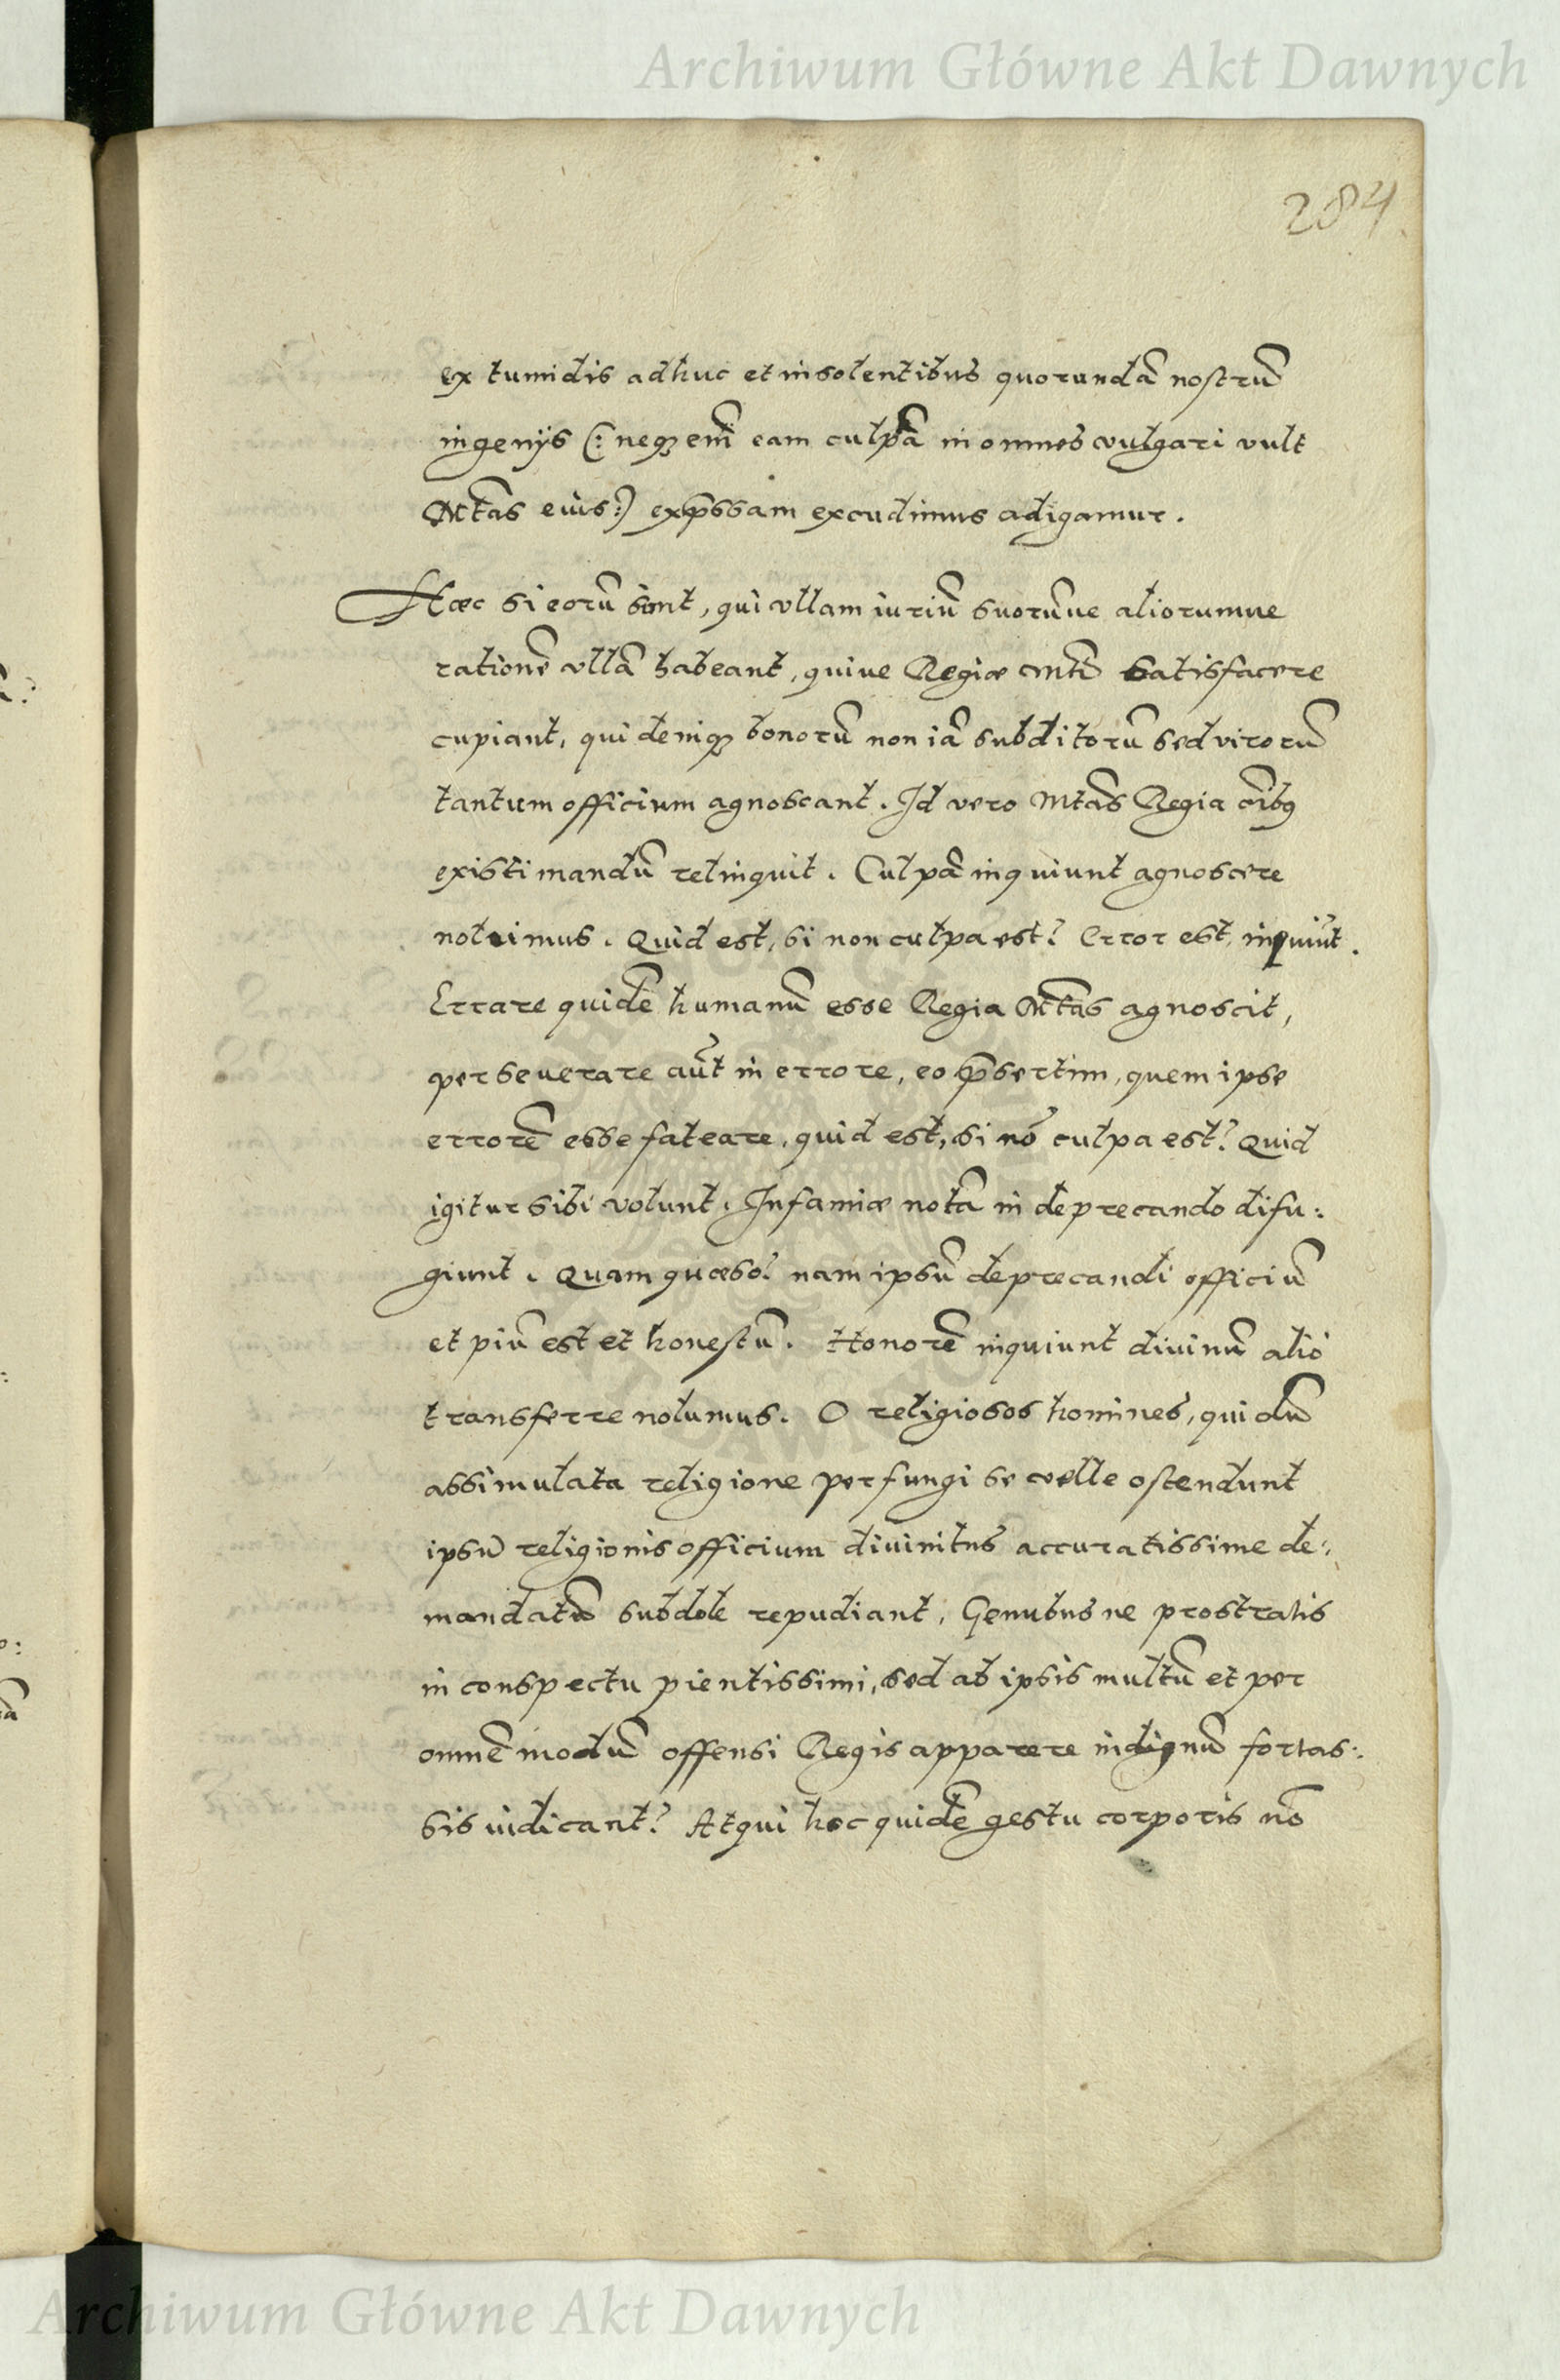 Archiwum Główne Akt Dawnych
284
ex tumidis adhuc et insolentibus quorundã nostrũ
ingenijs (: neqꝫ enĩ eam culpã in omnes vulgari vult
Mtãs eius :) exp̃ssam excudimus adigamur.
Haec si eorũ sint, qui ullam iuriũ suorũue aliorumue
rationẽ vllã habeant, quiue Regiae Mtĩ satisfacere
cupiant, qui deniqꝫ bonorũ non iã subditorũ sed virorũ
tantum officium agnoscant. Id vero Mtãs Regia oĩbꝫ
existimandũ relinquit. Culpã inquiunt agnoscere
noluimus. Quid est, si non culpa est? Error est, inquiũt.
Errare quidẽ humanũ esse Regia Mtãs agnoscit,
perseuerare aũt in errore, eo p̃sertim, quem ipse
errorẽ esse fateare, quid est, si nõ culpa est? Quid
igitur sibi volunt. Infamiae notã in deprecando difu:
giunt. Quam quaeso? nam ipsũ deprecandi officiũ
et piũ est et honestũ. Honorẽ inquiunt diuinũ alio
transferre nolumus. O religiosos homines, qui dũ
assimulata religione perfungi se velle ostendunt
ipsũ religionis officium diuinitus accuratissime de:
mandatũ subdole repudiant, Genubusne prostratis
in conspectu pientissimi, sed ab ipsis multũ et per
omnẽ modũ offensi Regis apparere indignũ fortas:
sis iudicant? Atqui hoc quidẽ gestu corporis nõ
Archiwum Główne Akt Dawnych